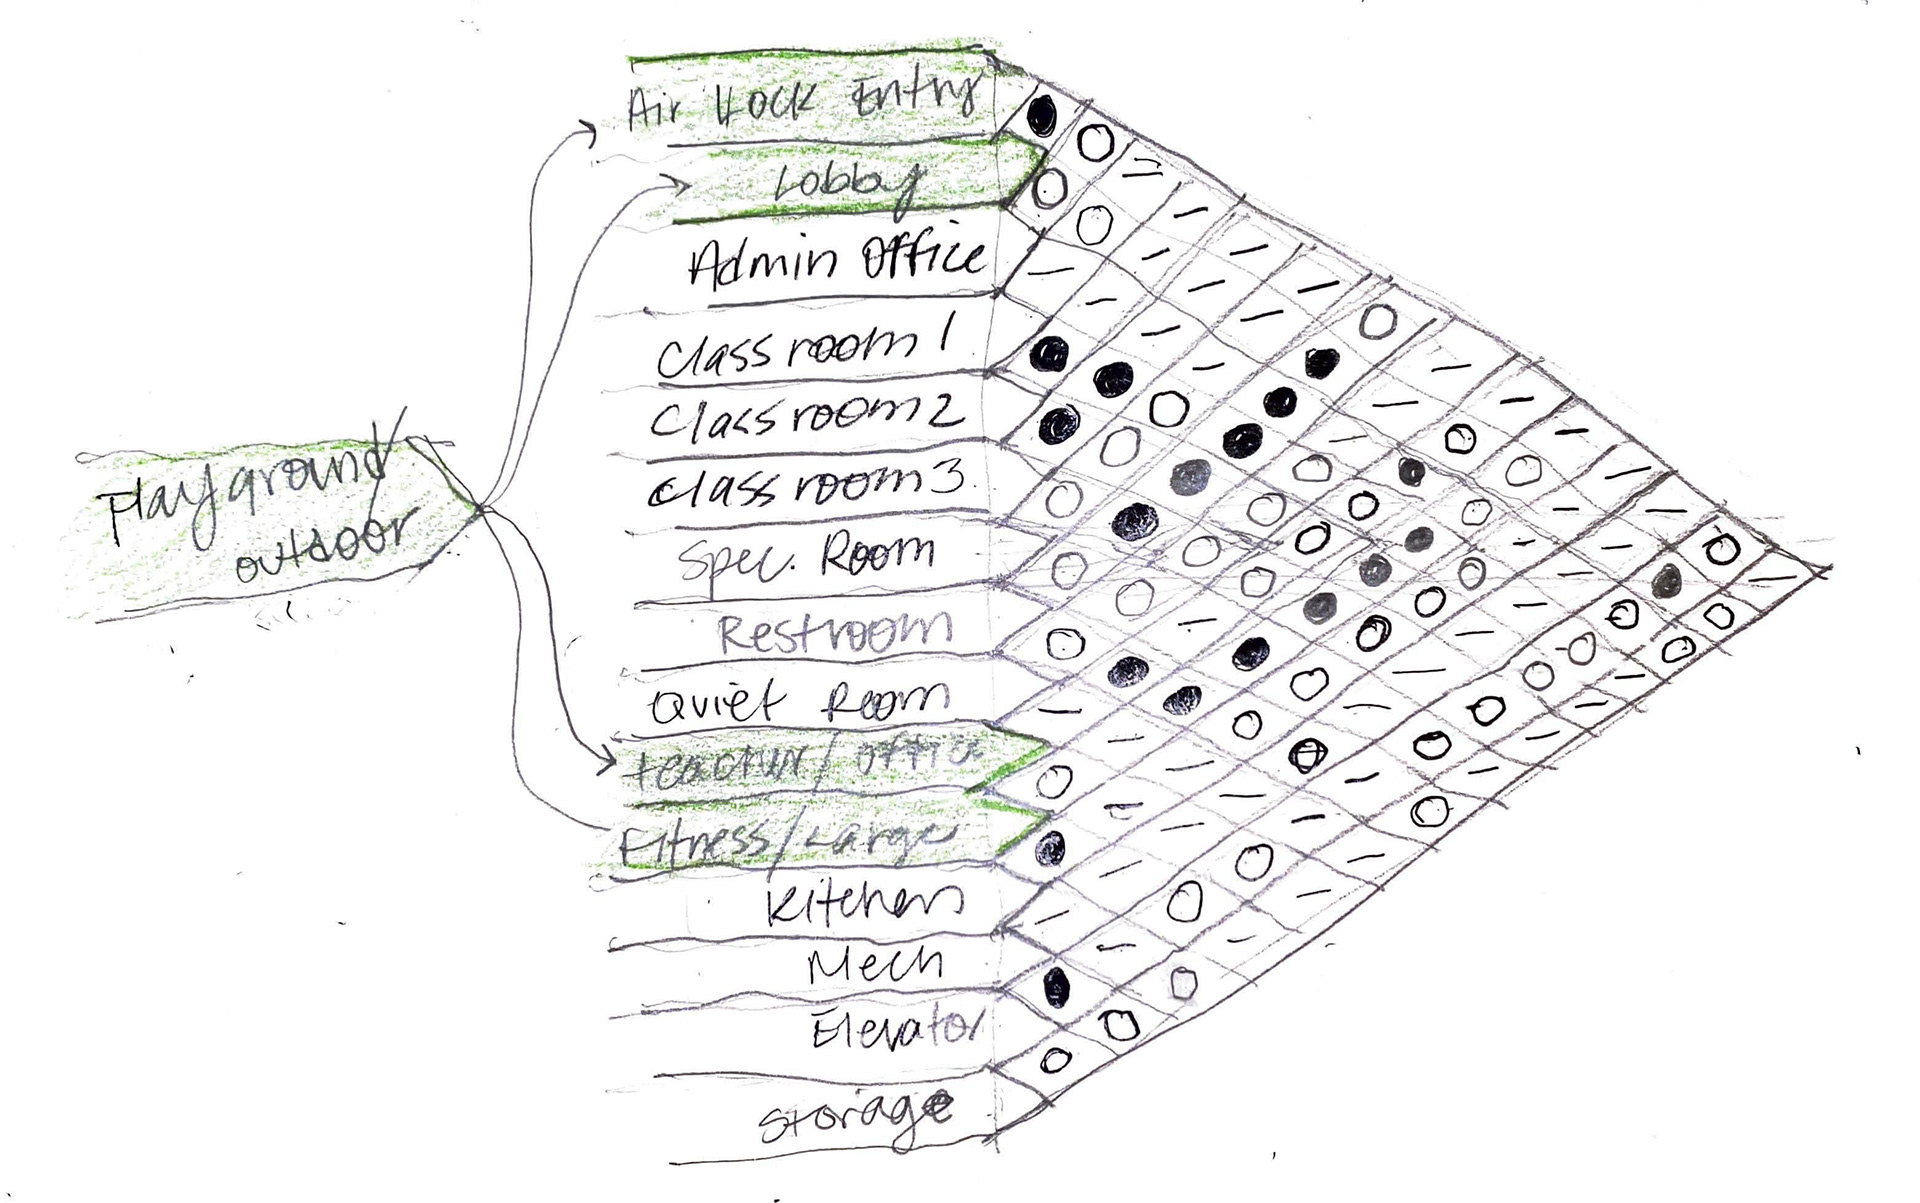 Air Lock Entry
Lobby
Admin Office
Classroom 1
Classroom 2
Classroom 3
Spec. Room
Restroom
Quiet Room
teacher/office
Fitness/Large
Kitchen
Mech
Elevator
Storage
Playground/
outdoor